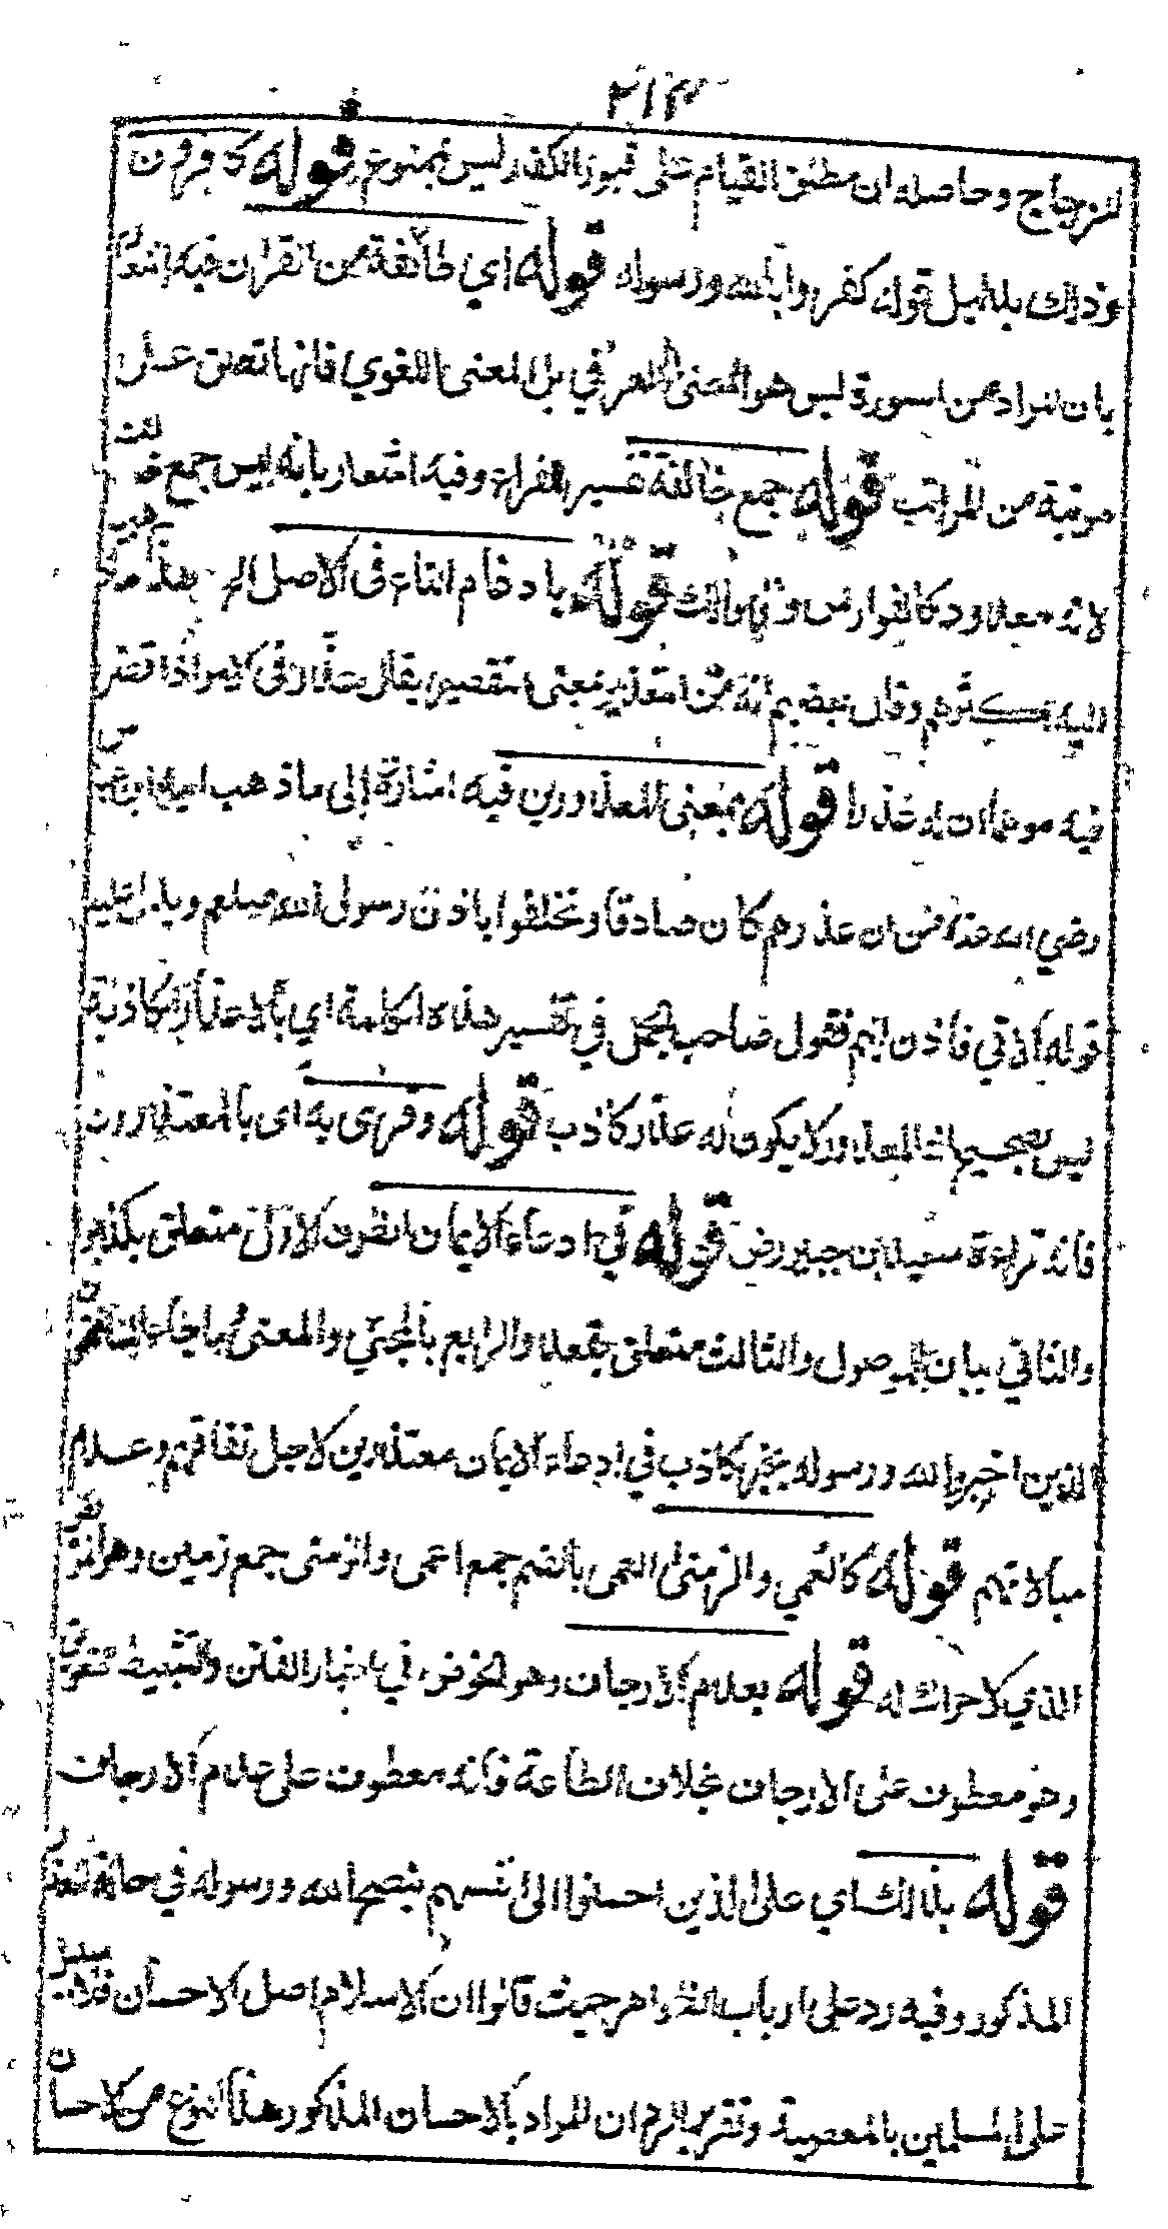 ٢١٣
للزجاج وحاصله ان مطلق القيام على قبور الكفار ليس بممنوع قوله كافرون
وذالك بدليل قوله كفروا بالله ورسوله قوله اي طائفة من القران فيه اشعار
بان المراد من السورة ليس هو المعنى العرفي بل المعنى اللغوي فانها تصدق على
مرتبة من المراتب قوله جمع خالفة تفسير للفراء وفيه اشعار بانه ليس جمع خالف
لانه معدود كالفوارس قوله بادغام التاء في الاصل الى هذا ذهب
اليه اكثرهم وقال بعضهم انه من التعذير بمعنى التقصير يقال عذر في الامر اذا قصر
فيه موهما ان له عذرا قوله بمعنى المعذورين فيه اشارة إلى ما ذهب اليه ابن عباس
رضي الله عنه من ان عذرهم كان صادقا وتخلفوا باذن رسول الله صلعم ويدل عليه
قوله الاتي فاذن لهم فقول صاحب الجمل في تفسير هذه الكلمة اي بالاعذار الكاذبة
ليس بصحيح المعذور لا يكون له عذر كاذب قوله وقرئ به اى بالمعتذرون
فانه قراءة سعيد ابن جبير رض قوله في ادعاء الايمان الظرف الاول متعلق بكذبوا
والثاني بيان للموصول والثالث متعلق بقعد والرابع بالمجئ والمعنى ما جاء المنافقون
الذين اخبروا الله ورسوله بخبر كاذب في ادعاء الايمان معتذرين لاجل نفاقهم وعدم
مبالاتهم قوله كالعمي والزمنى العمى بالضم جمع اعمى والزمنى جمع زمين وهو المرء
الذي لا حراك له قوله بعدم الارجاف وهو الخوض في اخبار الفتن والتثبيط تعويق
وهو معطوف على الارجاف بخلاف الطاعة فانه معطوف على عدم الارجاف
قوله بذالك اي على الذين احسنوا الى انفسهم بنصحها لله ورسوله في حالة القعود
المذكور وفيه رد على ارباب الظواهر حيث قالوا ان الاسلام اصل الاحسان فلا سبيل
على المسلمين بالمعصية وتقرير الرد ان المراد بالاحسان المذكور هذا النوع من الاحسان